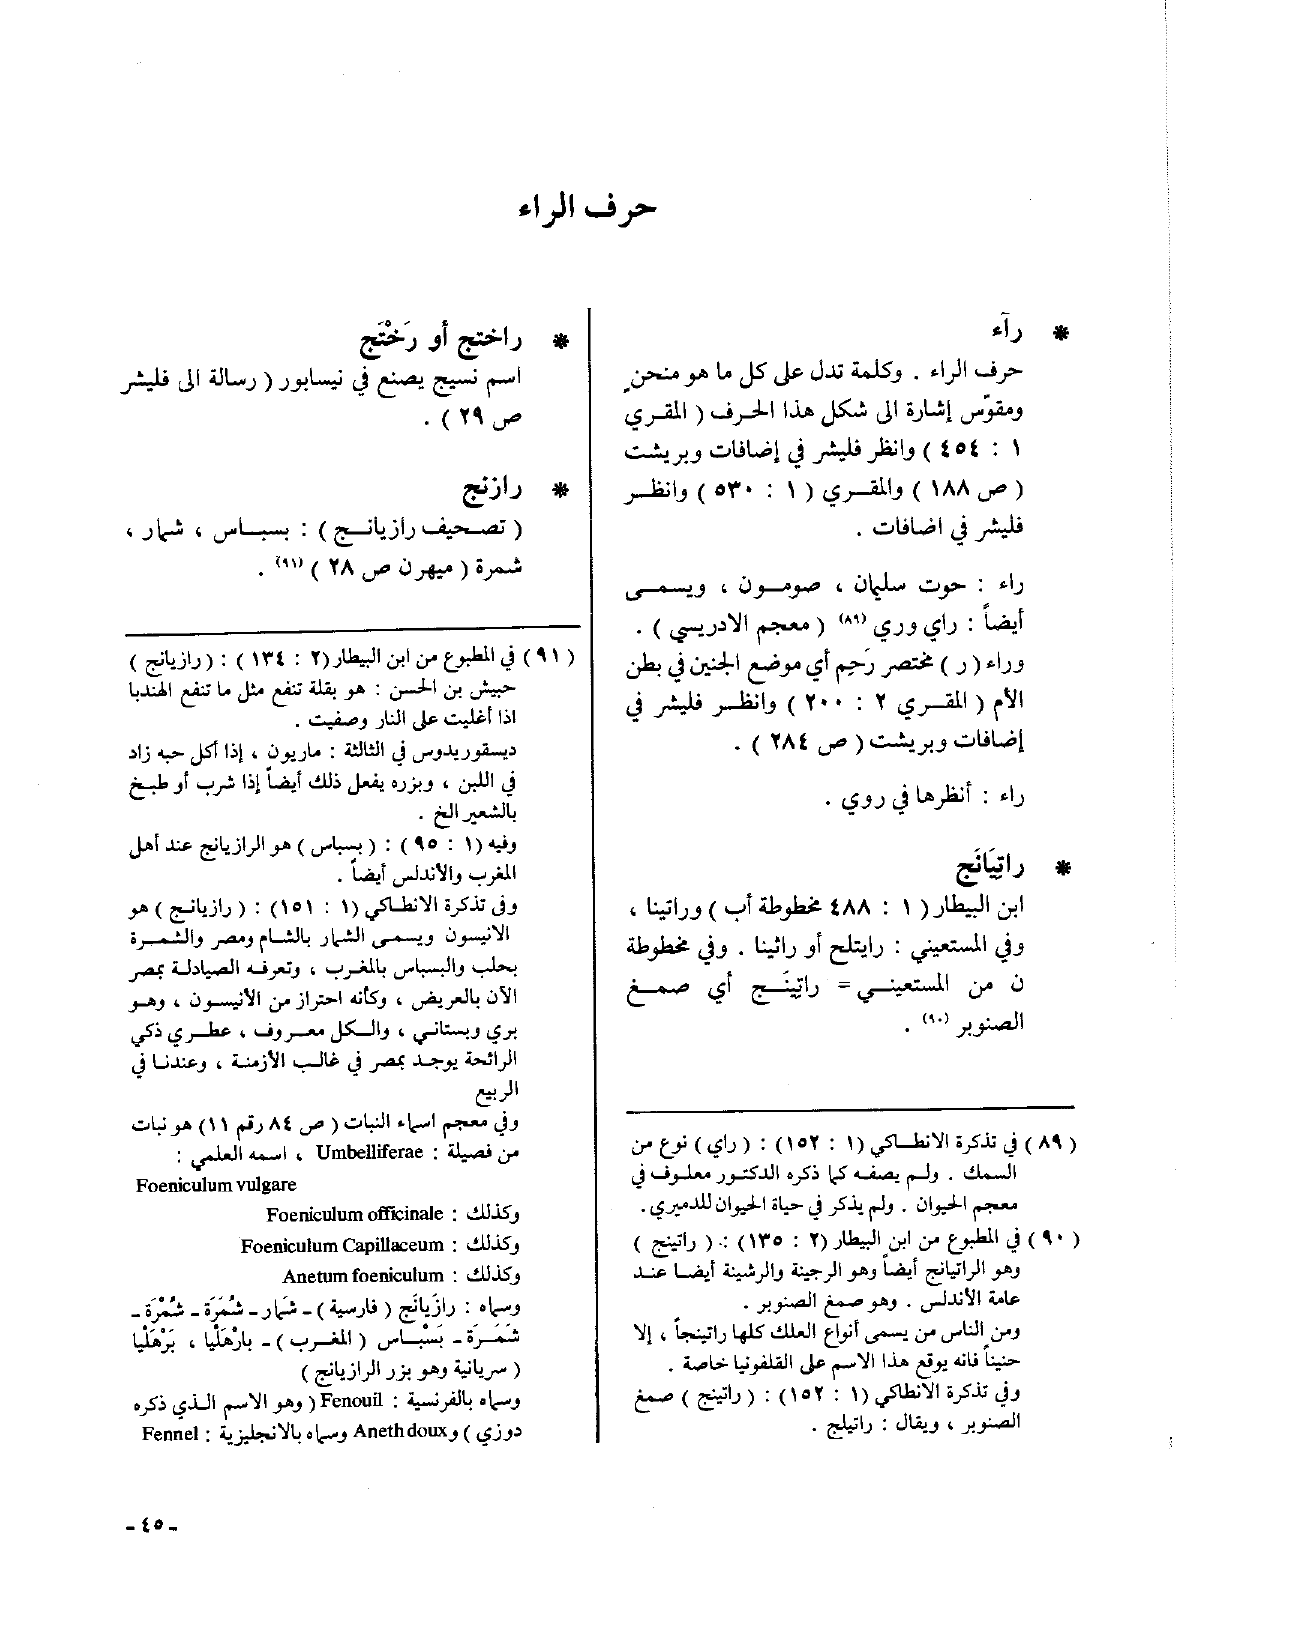 حرف الراء
* رآء
حرف الراء . وكلمة تدل على كل ما هو منحنٍ
ومقوّس إشارة الى شكل هذا الحرف ( المقري
١ : ٤٥٤ ) وانظر فليشر في إضافات وبريشت
( ص ١٨٨ ) والمقري ( ١ : ٥٣٠ ) وانظر
فليشر في اضافات .
راء : حوت سليمان ، صومون ، ويسمى
أيضاً : راي وري (٨٩) ( معجم الادريسي ) .
وراء ( ر ) مختصر رَحِم أي موضع الجنين في بطن
الأم ( المقري ٢ : ٢٠٠ ) وانظر فليشر في
إضافات وبريشت ( ص ٢٨٤ ) .
راء : أنظرها في روي .
* راتِيَانَج
ابن البيطار ( ١ : ٤٨٨ مخطوطة أب ) وراتينا ،
وفي المستعيني : رايتلج أو راثينا . وفي مخطوطة
ن من المستعيني = راتِينَج أي صمغ
الصنوبر (٩٠) .
( ٨٩ ) في تذكرة الانطاكي (١ : ١٥٢) : ( راي ) نوع من
السمك . ولم يصفه كما ذكره الدكتور معلوف في
معجم الحيوان . ولم يذكر في حياة الحيوان للدميري.
( ٩٠ ) في المطبوع من ابن البيطار (٢ : ١٣٥) : ( راتينج )
وهو الراتيانج أيضاً وهو الرجينة والرشينة أيضا عند
عامة الأندلس . وهو صمغ الصنوبر .
ومن الناس من يسمى أنواع العلك كلها راتينجاً ، إلا
حنيناً فانه يوقع هذا الاسم على القلفونيا خاصة .
وفي تذكرة الانطاكي (١ : ١٥٢) : ( راتينج ) صمغ
الصنوبر ، ويقال : راتيلج .
* راختج أو رَخْتَج
اسم نسيج يصنع في نيسابور ( رسالة الى فليشر
ص ٢٩ ) .
* رازنج
( تصحيف رازيانج ) : بسباس ، شمار ،
شمرة ( ميهرن ص ٢٨ ) (٩١) .
( ٩١ ) في المطبوع من ابن البيطار (٢ : ١٣٤ ) : ( رازيانج )
حبيش بن الحسن : هو بقلة تنفع مثل ما تنفع الهندبا
اذا أغليت على النار وصفيت .
ديسقوريدوس في الثالثة : ماريون ، إذا أكل حبه زاد
في اللبن ، وبزره يفعل ذلك أيضاً إذا شرب أو طبخ
بالشعير الخ .
وفيه (١ : ٩٥ ) : ( بسباس ) هو الرازيانج عند أهل
المغرب والاندلس أيضاً .
وفي تذكرة الانطاكي (١ : ١٥١) : ( رازيانج ) هو
الانيسون ويسمى الشمار بالشام ومصر والشمرة
بحلب والبسباس بالمغرب ، وتعرفه الصيادلة بمصر
الآن بالعريض ، وكأنه احتراز من الأنيسون ، وهو
بري وبستاني ، والكل معروف ، عطري ذكي
الرائحة يوجد بمصر في غالب الأزمنة ، وعندنا في
الربيع
وفي معجم اسماء النبات ( ص ٨٤ رقم ١١) هو نبات
من فصيلة : Umbelliferae ، اسمه العلمي :
Foeniculum vulgare
وكذلك : Foeniculum officinale
وكذلك : Foeniculum Capillaceum
وكذلك : Anetum foeniculum
وسماه : رازَيانَج ( فارسية ) - شَمار - شَمُرَة - شُمْرَة -
شَمَرَة - بَسْبَاس ( المغرب ) - بارْهَلْيا ، بَرْهَلْيا
( سريانية وهو بزر الرازيانج )
وسماه بالفرنسية : Fenouil ( وهو الاسم الذي ذكره
دوزي ) و Aneth doux وسماه بالانجليزية : Fennel
- ٤٥ -